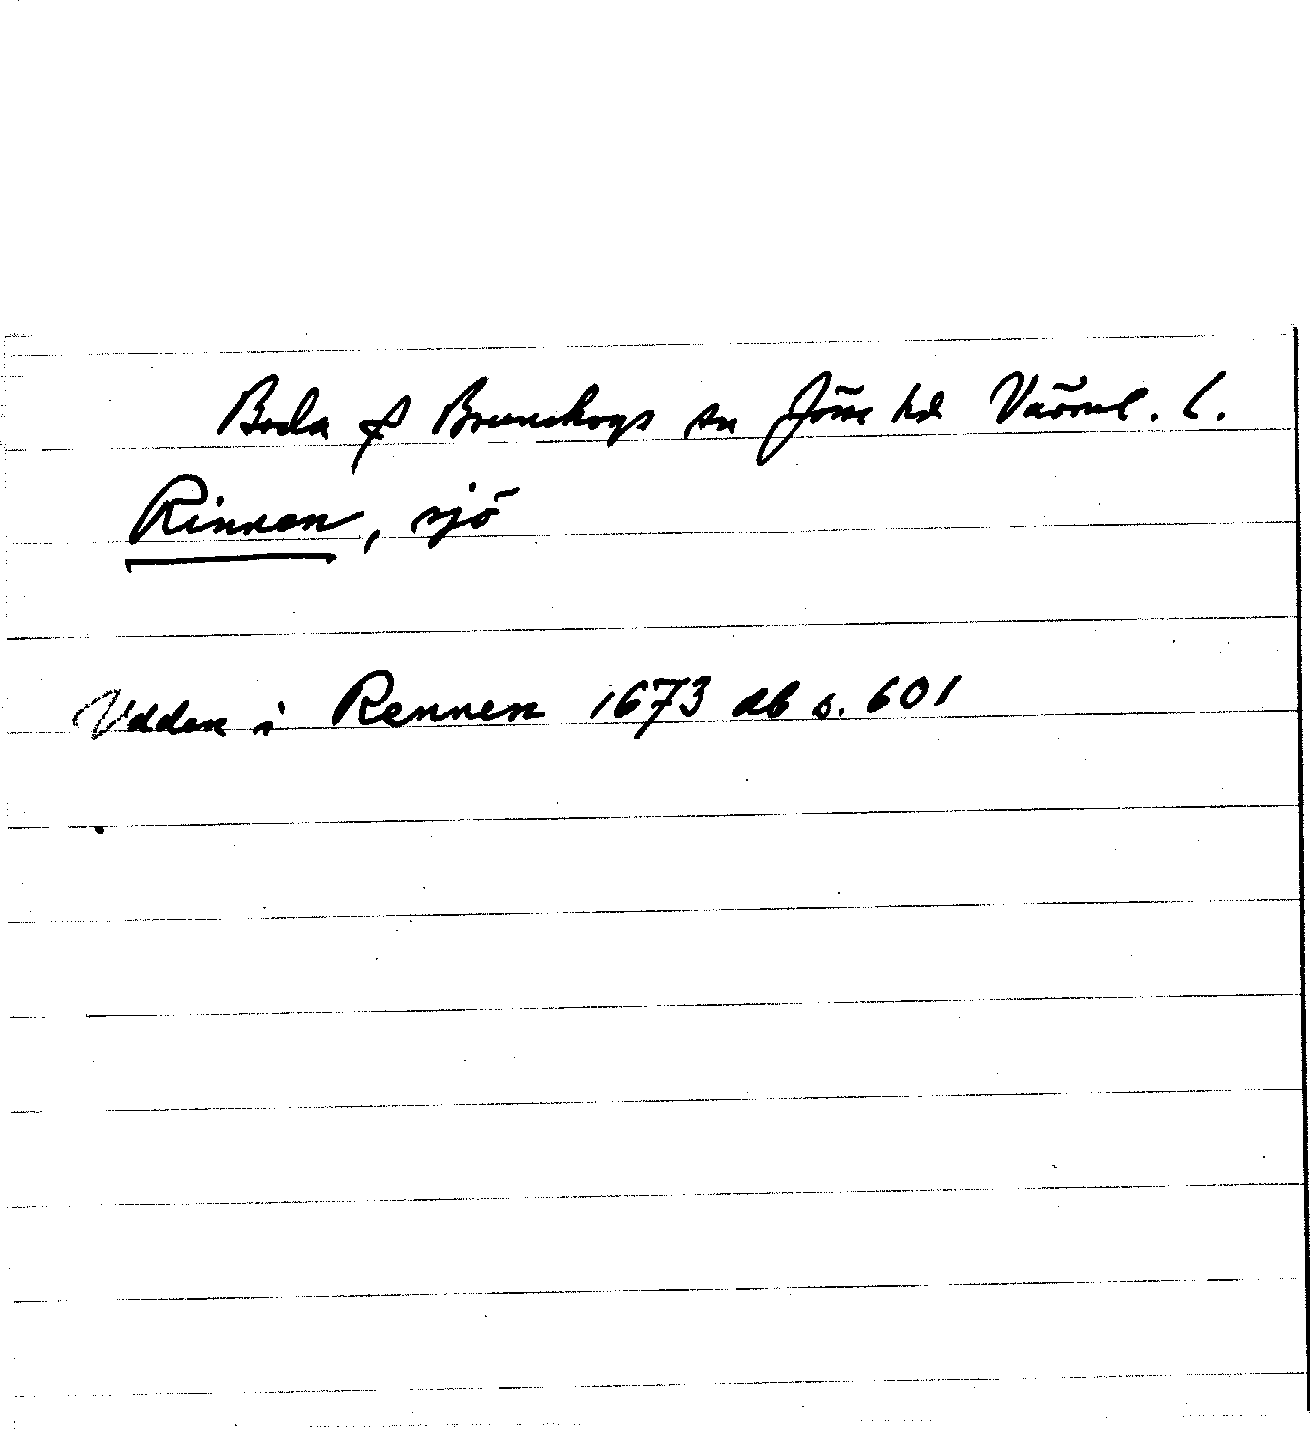 Boda f Brunskogs sn Jöse hd Värml. l.
Rinnen, sjö
Udden i Rennen 1673 db s. 601